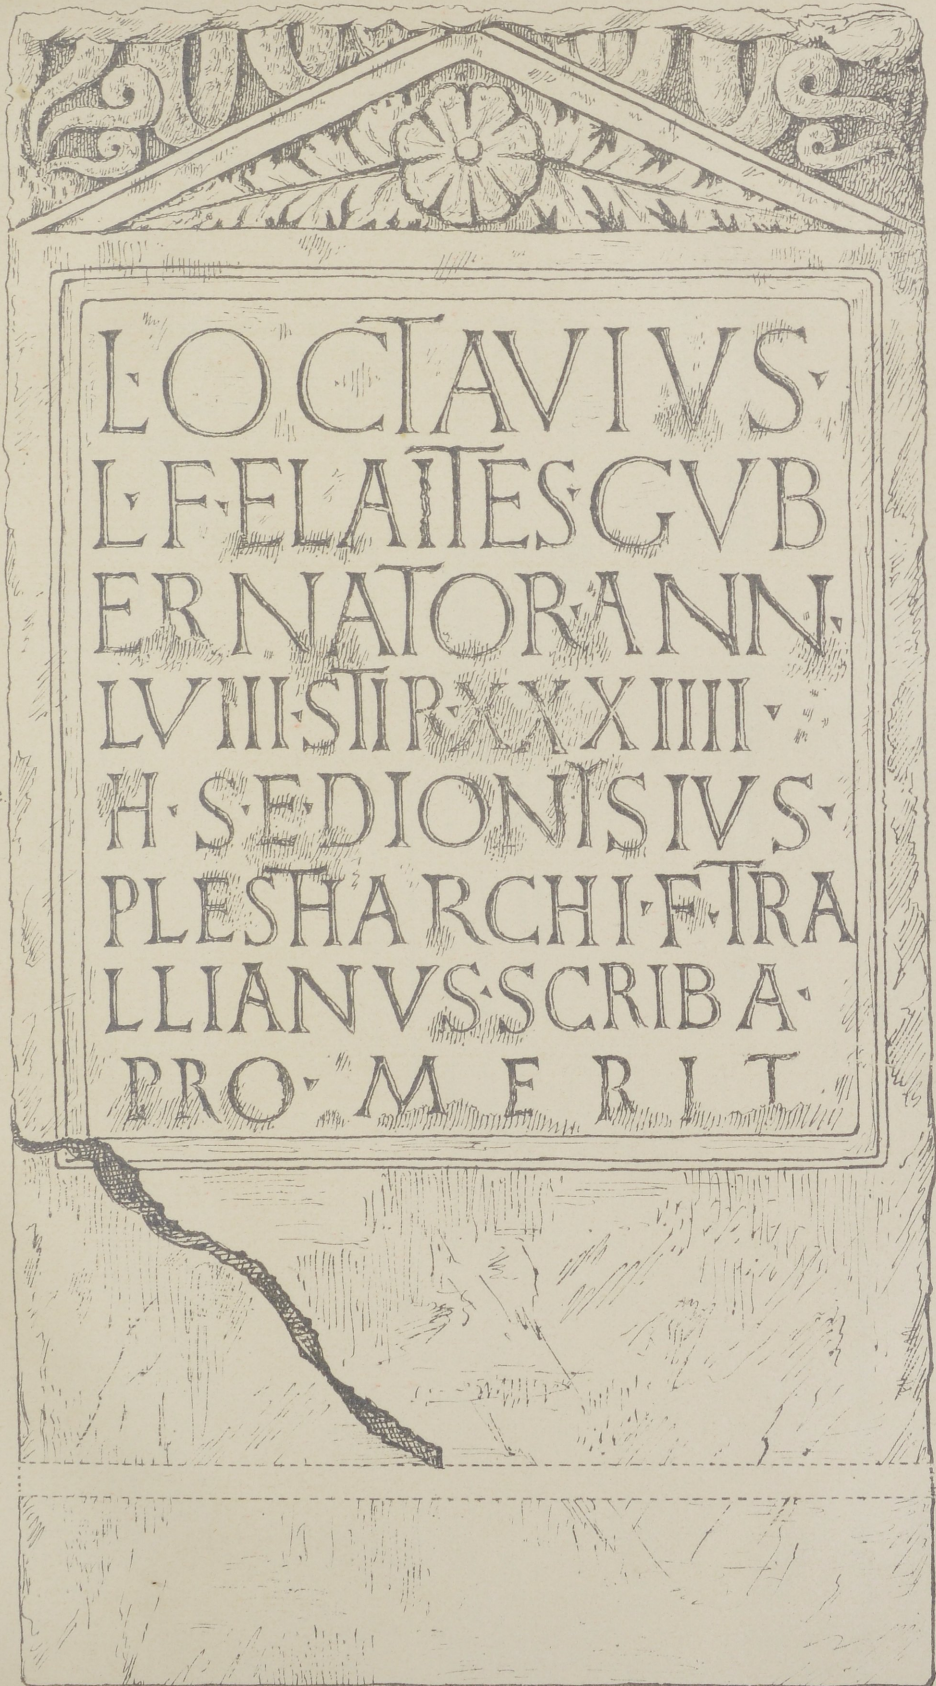 L·OCTAVIVS·
L·F·ELAITES·GVB
ERNATOR·ANN·
LVIII·STIP·XXXIIII·
H·S·E·DIONISIVS·
PLESTHARCHI·F·TRA
LLIANVS·SCRIBA·
PRO·MERIT